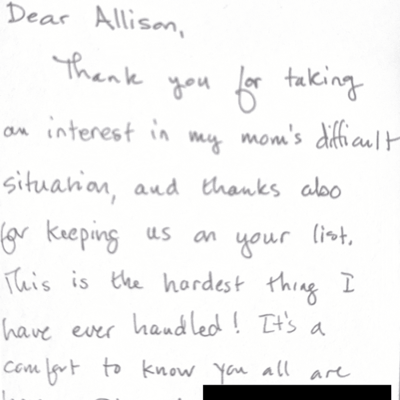 Dear Allison,
Thank you for taking
an interest in my mom's difficult
situation, and thanks also
for keeping us on your list.
This is the hardest thing I
have ever handled! It's a
comfort to know you all are